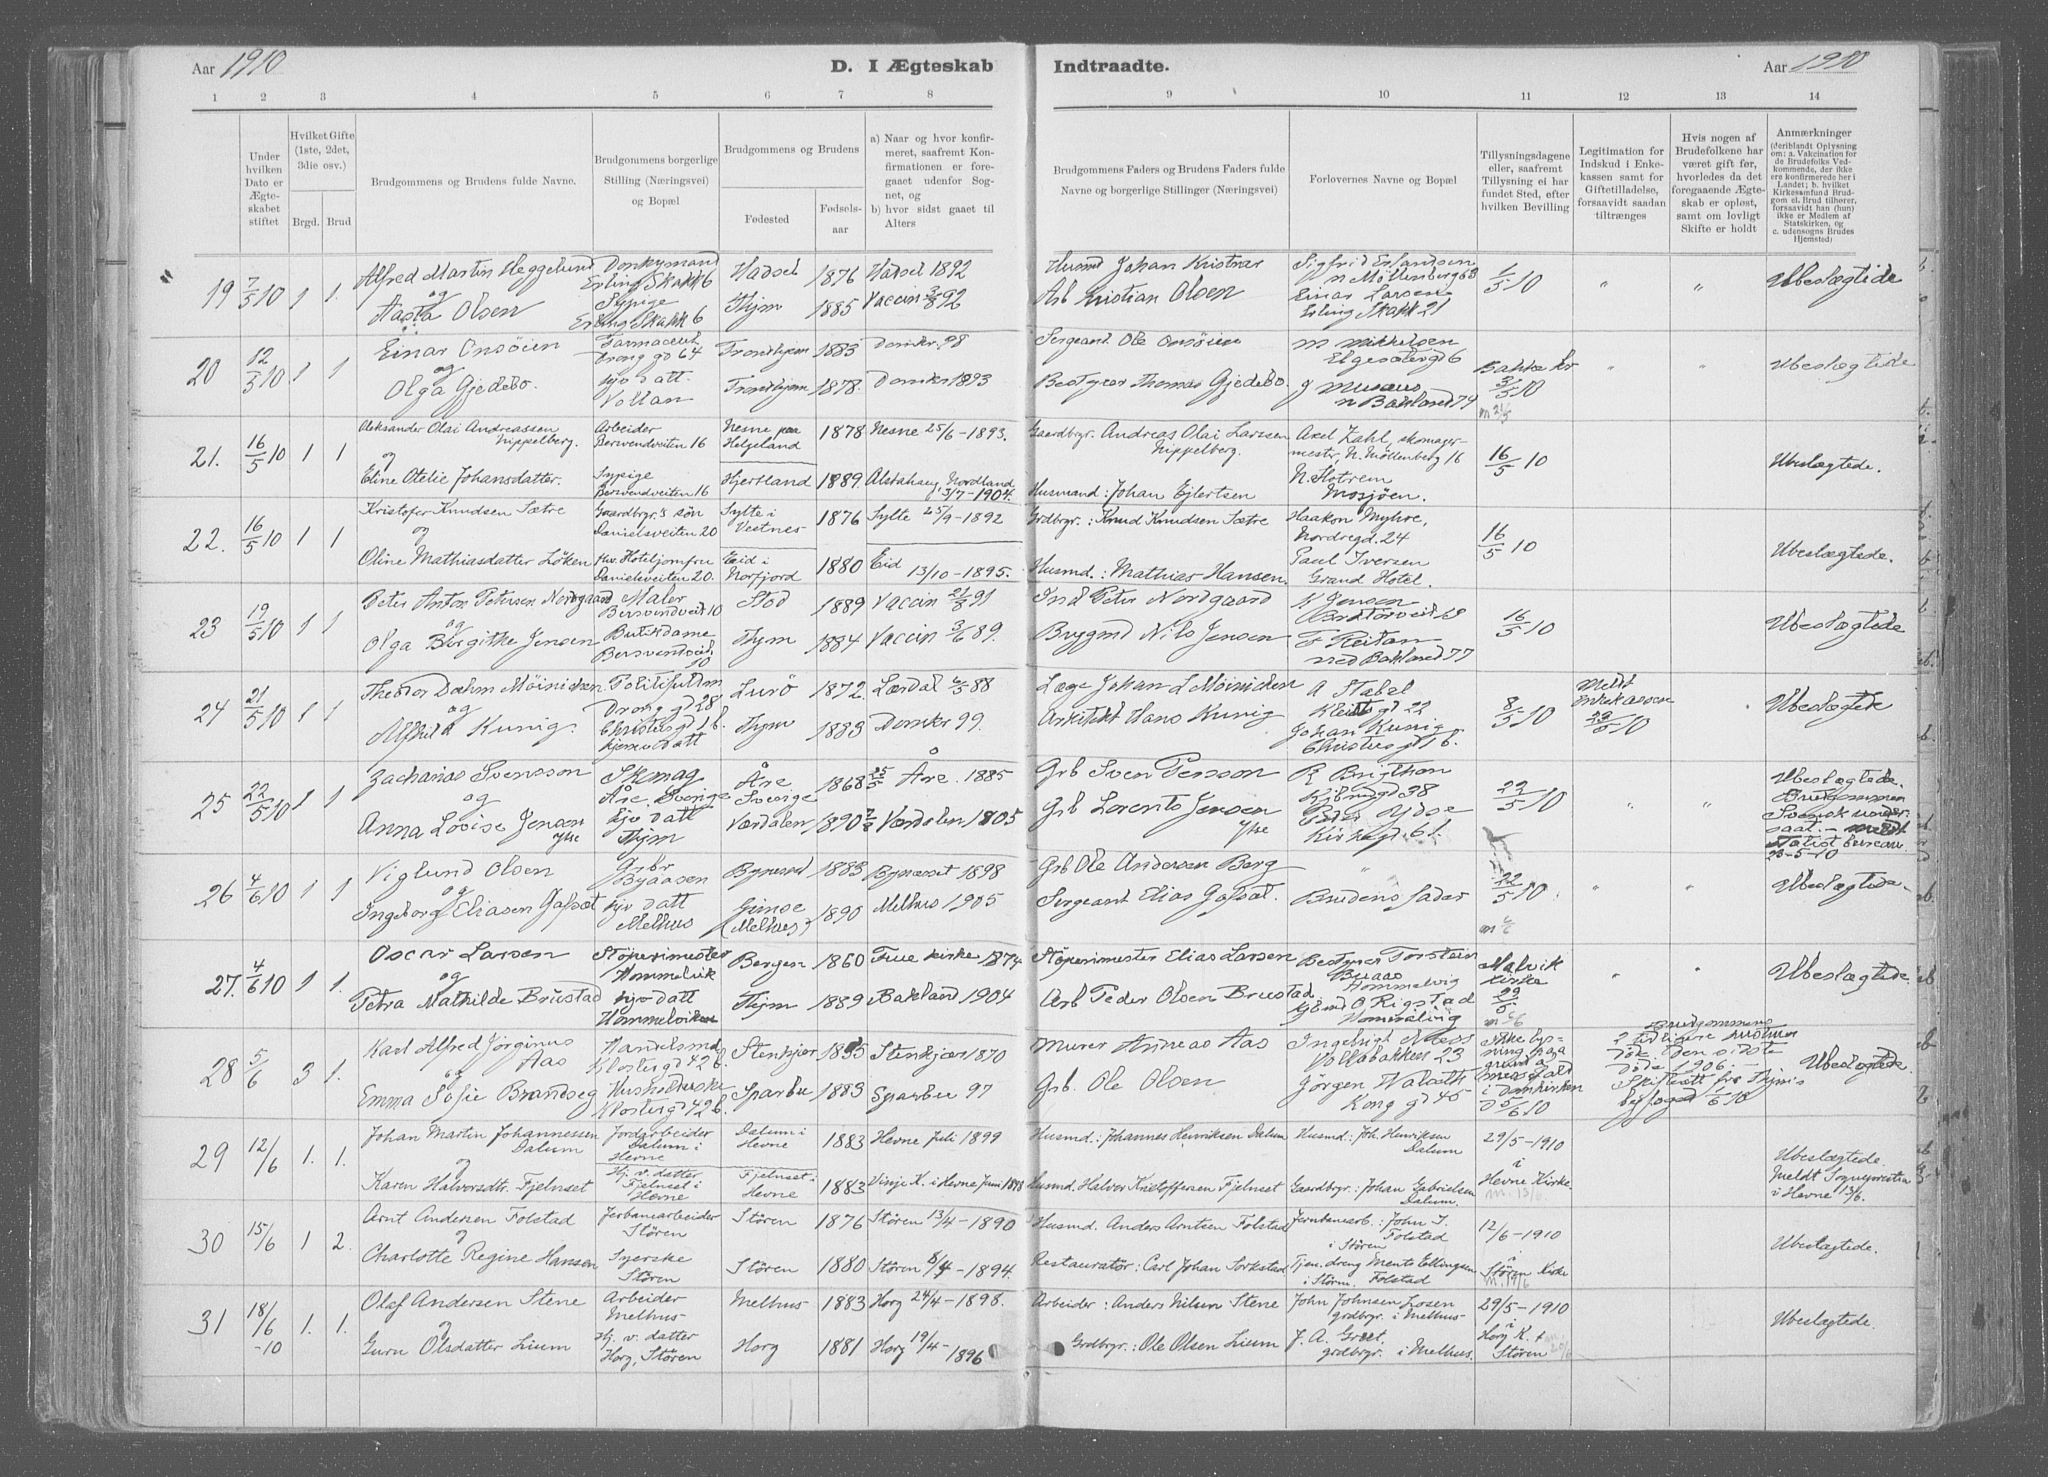 Aar 1910
D. I Ægteskab
Indtraadte.
Aar 1910
1 2 3 4 5 6 7 8 9 10 11 12 13 14
Under hvilken Dato er Ægteskabet stiftet
Hvilket Gifte (1ste, 2det, 3die osv.)
Brgd. Brud
Brudgommens og Brudens fulde Navne.
Brudgommens borgerlige Stilling (Næringsvei) og Bopæl
Brudgommens og Brudens
Fødested
Fødselsaar
a) Naar og hvor konfirmeret, saafremt Konfirmationen er foregaaet udenfor Sognet, og
b) hvor sidst gaaet til Alters
Brudgommens Faders og Brudens Faders fulde Navne og borgerlige Stillinger (Næringsvei)
Forlovernes Navne og Bopæl
Tillysningsdagene eller, saafremt Tillysning ei har fundet Sted, efter hvilken Bevilling
Legitimation for Indskud i Enkekassen samt for Giftetilladelse, forsaavidt saadan tiltrænges
Hvis nogen af Brudefolkene har været gift før, hvorledes da det foregaaende Ægteskab er opløst, samt om lovligt Skifte er holdt
Anmærkninger (deriblandt Oplysning om: a. Vakcination for de Brudefolks Vedkommende, der ikke ere konfirmerede her i Landet; b. hvilket Kirkesamfund Brudgom el. Brud tilhører, forsaavidt han (hun) ikke er Medlem af Statskirken, og c. udensogns Brudes Hjemsted)
19 7/5 10 1 1. Alfred Martin Heggelund Donkymand Erling Skakk 6 Hadsel 1876 Hadsel 1892 Husmd Johan Kristian Sigfrid Erlandsen n Möllenberg 63 1/5 10 " " Ubeslægtede
og Aasta Olsen Sypige Erling Skakk 6 Thjm 1885 Vaccin 3/8 92 Arb Kristian Olsen Einar Larsen Erling Skakk 21
20 12/5 10 1 1 Einar Onsöien Farmaceut Drong gd 64 Trondhjem 1883 Domkr. 98 Sergeant Ole Onsöien M Mikkelsen Elgesætergd 6 Bakke kr 3/5 10 " " Ubeslægtede
og Olga Gjedebo. hjv datt. Vollan Trondhjem 1878. Domkr 1893 Bestyrer Thomas Gjedebo. J Musæus n Bakland 74
21. 16/5 10 1 1 Aleksander Olai Andreassen Nippelberg. Arbeider Bersvendveiten 16 Nesne paa Helgeland 1878 Nesne 25/6-1893. Gaardbrgr. Andreas Olai Larssen Nippelberg. Axel Zahl, skomagermester, N. Möllenberg 16 16/5 10 Ubeslægtede.
og Eline Otelie Johansdatter. Sypige Bersvendveiten 16 Hjertland 1889. Alstahaug, Nordland 3/7-1904. Husmand: Johan Ejlertsen N. Slotrem Mosjöen.
22. 16/5 10 1 1 Kristofer Knudsen Sætre Gaardbrgr.s sön Danielsveiten 20 Sylte i Vestnes 1876 Sylte 25/9-1892 Grdbrgr.: Knud Knudsen Sætre Haakon Myhre, Nordregd. 24 16/5 10 Ubeslægtede.
og Oline Mathiasdatter Löken Hoteljomfru Danielsveiten 20. Eid i Norfjord 1880 Eid 13/10-1895. Husmd.: Mathias Hansen. Paul Iversen Grand Hotel.
23 19/5 10 1 1 Peter Anton Petersen Nordgaard Maler Bersvendveit 10 Stod 1889 Vaccin 21/8 91 Ind Peter Nordgaard K Jensen 16/5 10 Ubeslægtede
og Olga Birgithe Jensen Butikdame Bersvendveit. 10 Thjm 1884 Vaccin 3/6 89. Brygmd Nils Jensen F Reitan ned Bakland 77
24 21/5 10 1 1 Theodor Dahm Möinichen Politifuldm Drong gd 28 Lurö 1872. Lærdal 88 Læge Johan L Möinichen A Stabel 22 8/5 10 Meldt Enkekassen 10 Ubeslægtede
og Alfhild Kunig. Christiesgd 1b. hjemv datt Thjm 1883 Domkr 99. Arkitekt Hans Kunig Johan Kunig Christies gd 1b.
25 22/5 10 1 1 Zacharias Svensson Skomag Åre, Sverige Åre Sverige 1868 25/5 Åre. 1885 Grb Sven Persson R Brigthon 38 22/5 10 " " Ubeslægtede. Brudgommen Svensk undersaat. - meldt Statist bureau 23-5-10
og Anna Lovise Jensen Ytre hjv datt Thjm Værdalen 1890 Værdalen 1905 Grb Lorents Jensen Ytre Peder Ydse Kirkegd. 61.
26 4/6 10 1 1 Viglund Olsen Gsbr Byaasen Bynesset 1883 Bynesset 1898 Grb Ole Andersen Berg " 22/5 10 " " Ubeslægtede
og Ingeborg Eliasen Gafsæt hjv datt Melhus Gimse (Melhus) 1890 Melhus 1905 Sergeant Elias Gafsæt. Brudens fader
27. 4/6 10 1 1. Oscar Larsen Støperimester Hommelvik Bergen 1860 True Kirke 1874 Støperimester Elias Larsen Bestyrer Torstein Buaas Hommelvig Malvik Kirke 29/5 " " Ubeslægtede
og Petra Mathilde Brustad hjv datt Hommelviken Thjm 1889 Bakland 1904 Arb Peder Olsen Brustad O Rigstad Hommelvig
28 5/6 3 1. Karl Alfred Jörginus Aas Handelsmd Klostergd 42 b. Stenkjær 1855 Stenkjær 1870 Murer Andreas Aas Ingebrigt Næss Vollabakken 23 Ikke lysning paa grund af messefald i Domkirken 5/6 10 Brudgommens 2 tidligere hustruer døde. Den sidste døde 1906. - Skifteatt fra Thjms byfoged 1/6 10 Ubeslægtede
og Emma Sofie Brandseg Husholderske Klostergd 42 b. Sparbu 1883 Sparbu 97 Grb. Ole Olsen Jörgen Walseth Kong gd 45
29 12/6 1. 1. Johan Martin Johannessen Dalum Jordarbeider Dalum i Hevne Dalum i Hevne 1883 Hevne Juli 1899 Husmd.: Johannes Henriksen Dalum Husmd: Joh. Henriksen Dalum 29/5-1910 i Hevne Kirke Ubeslægtede. Meldt Sognepresten i Hevne 13/6.
og Karen Halvorsdtr. Fjelnset Hj. v. datter Fjelnset i Hevne Fjelnset i Hevne 1883 Vinje K. i Hevne Juni 1898 Husmd. Halvor Kristoffersen Fjelnset Gaardbrgr.: Johan Gabrielsen Dalum.
30 15/6 1 2. Arnt Andersen Folstad Jernbanearbeider Stören Stören 1876 Stören 13/4-1890 Husmd. Anders Arntsen Folstad Jernbanearb.: John I. Folstad i Stören 12/6-1910 i Stören Kirke Ubeslægtede.
og Charlotte Regine Hansen Syerske Stören Stören 1880 Stören 8/4-1894. Restauratör: Carl Johan Torkstad Tjen. dreng Mento Ellingsen i Stören. Folstad
31 18/6-10 1. 1. Olaf Andersen Stene Arbeider Melhus Melhus 1883 Horg 24/4-1898. Arbeider: Anders Nilsen Stene John Johnsen Losen grdbrgr. i Melhus 29/5-1910 i Horg K. + Stören Ubeslægtede.
og Guru Olsdatter Lium Hj. v. datter Horg, Stören Horg 1881 Horg 19/4-1896 Grdbrgr.: Ole Olsen Lium J. A. Gröt. grdbrgr. i Melhus.